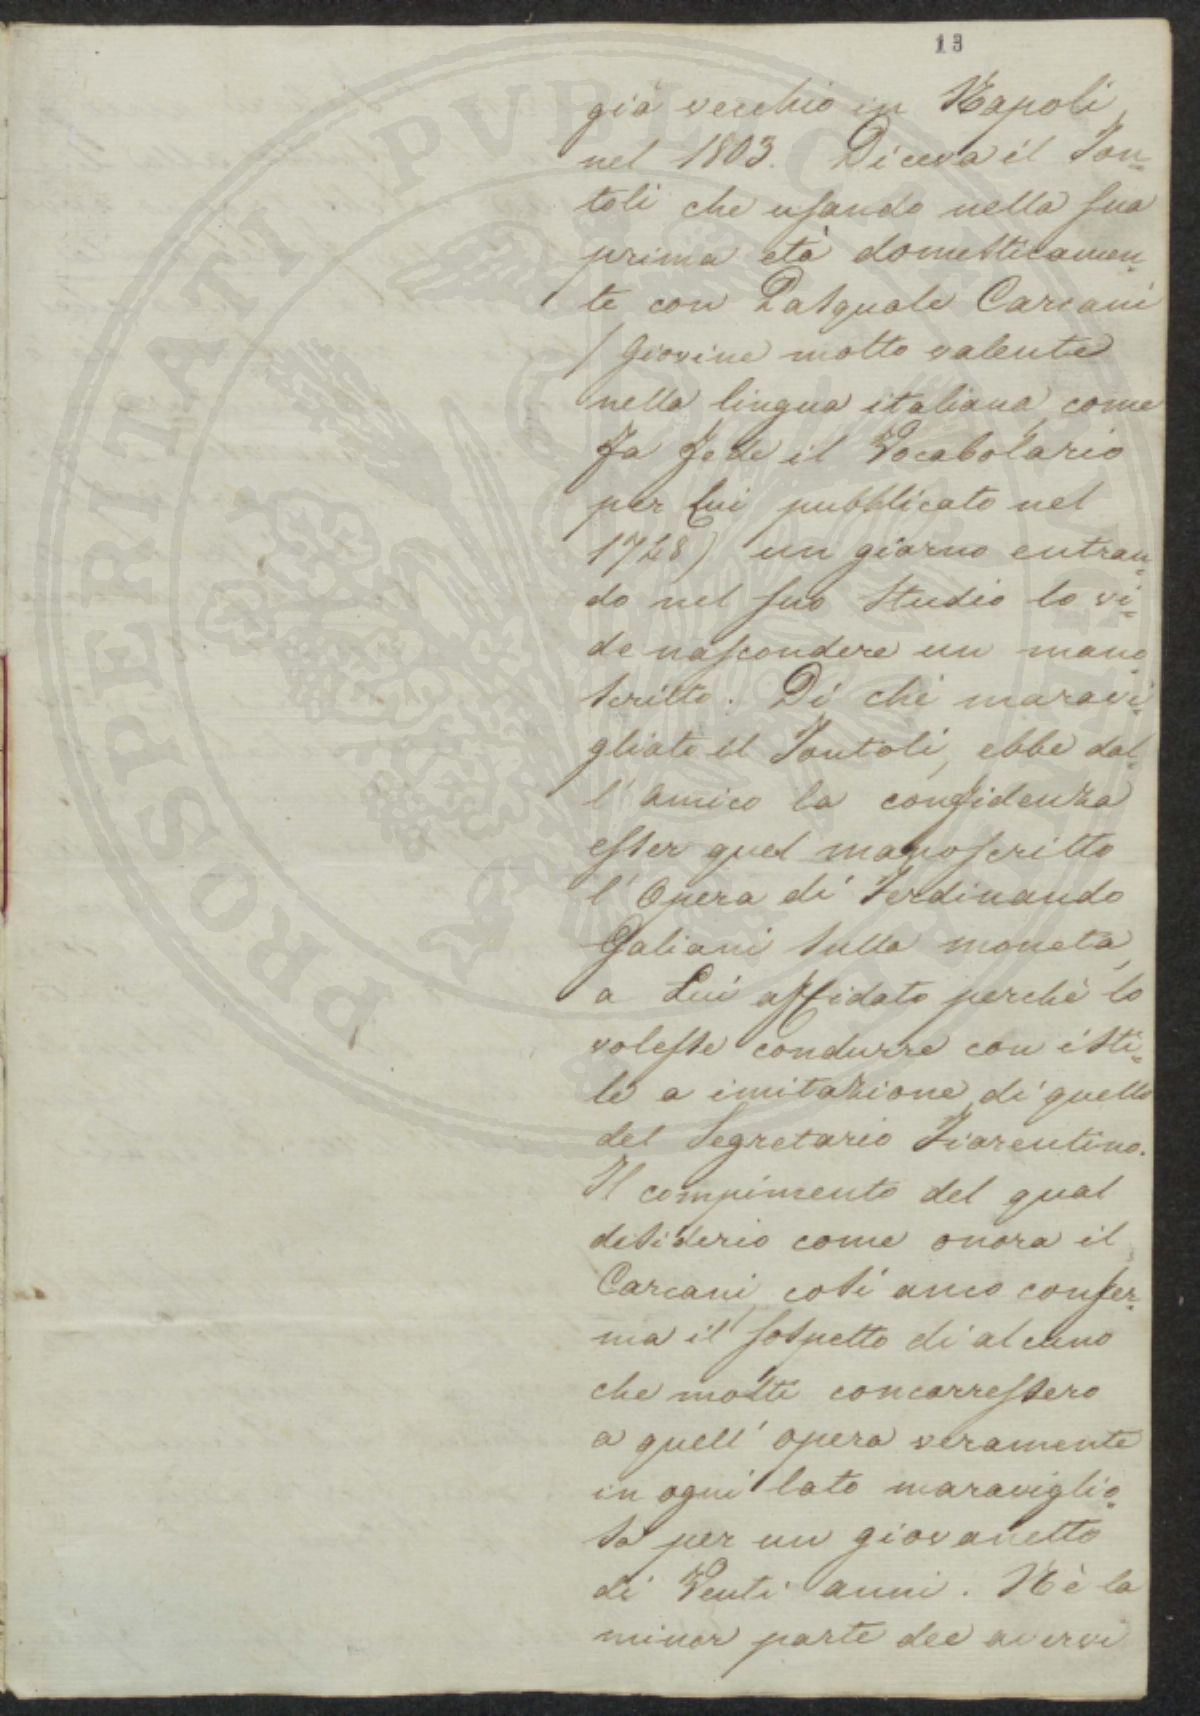 13
già vecchio in Napoli
nel 1803. Diceva il Fon-
toli che usando nella sua
prima età domesticamen-
te con Pasquale Carcani
/ Giovine molto valente
nella lingua italiana, come
fa fede il Vocabolario
per lui pubblicato nel
1728) un giorno entran-
do nel suo studio lo vi-
de nascondere un mano-
scritto. Di che maravi-
gliato il Fontoli, ebbe dal-
l'amico la confidenza
esser quel manoscritto
l'Opera di Ferdinando
Galiani sulla moneta,
a Lui affidato perchè lo
volesse condurre con isti-
le a imitazione di quello
del Segretario Fiorentino.
Il compimento del qual
desiderio come onora il
Carcani, così anco confer-
ma il sospetto di alcuno
che molti concorressero
a quell'opera veramente
in ogni lato maraviglio-
sa per un giovanetto
di Venti anni. Nè la
minor parte dee avervi
PROSPERITATI PVBLICAE